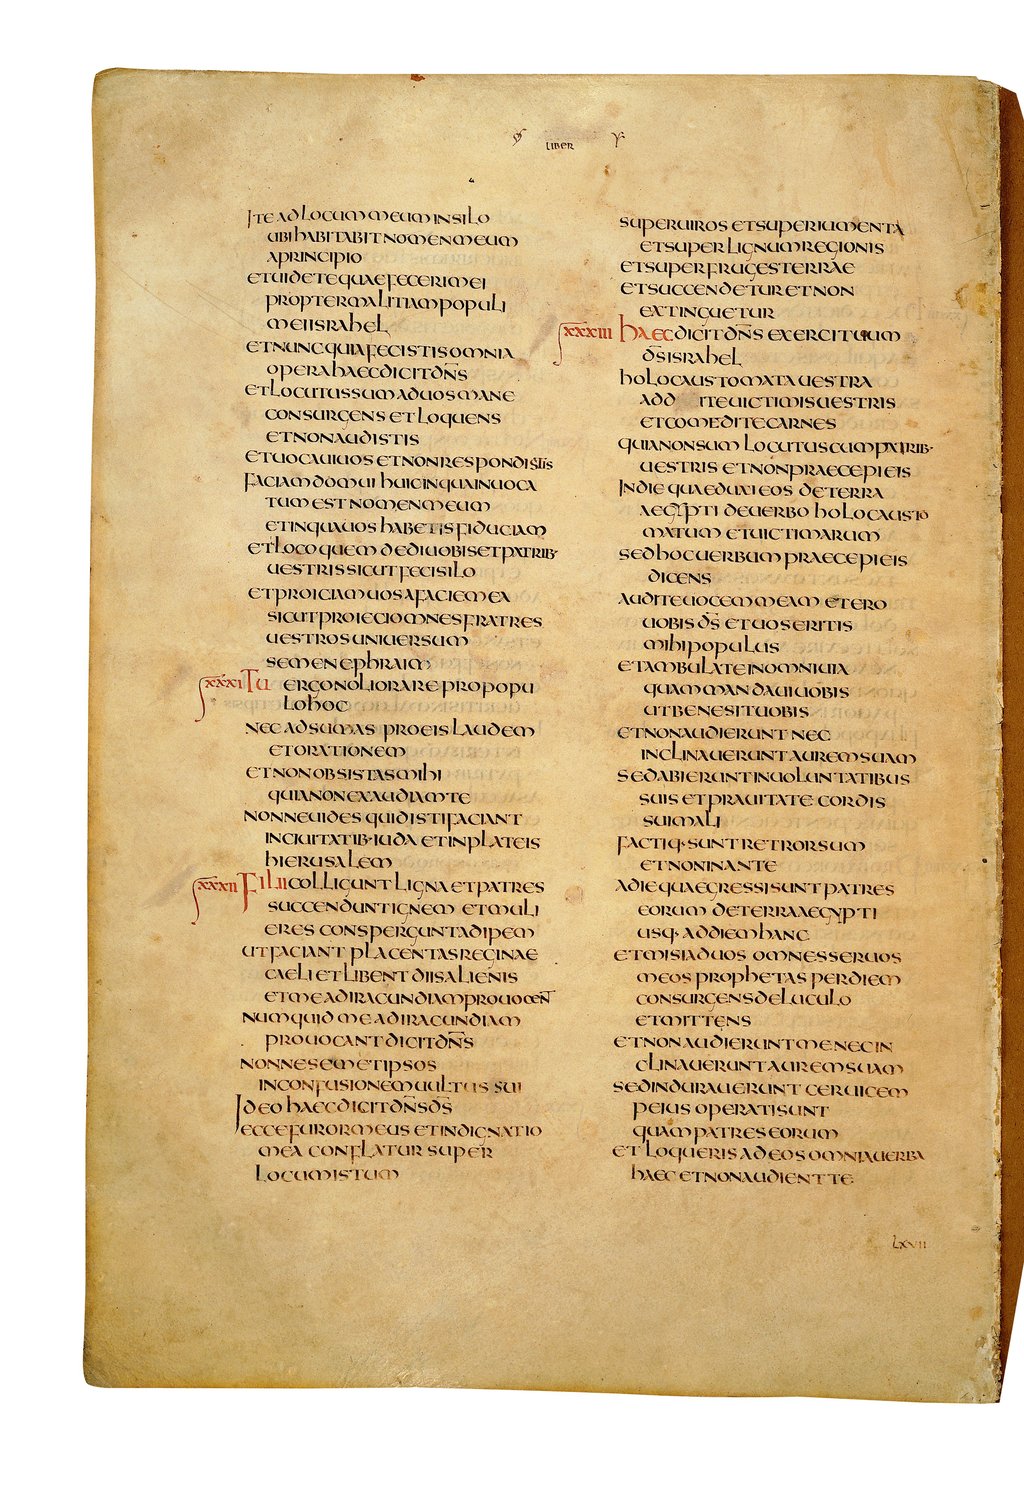 LIBER
ITE AD LOCUM MEUM IN SILO
UBI HABITABIT NOMEN MEUM
A PRINCIPIO
ET UIDETE QUAE FECERIM EI
PROPTER MALITIAM POPULI
MEI ISRAHEL
ET NUNC QUIA FECISTIS OMNIA
OPERA HAEC DICIT DN̅S
ET LOCUTUS SUM AD UOS MANE
CONSURGENS ET LOQUENS
ET NON AUDISTIS
ET UOCAUI UOS ET NON RESPONDISTIS
FACIAM DOMUI HUIC IN QUA INUOCA
TUM EST NOMEN MEUM
ET IN QUA UOS HABETIS FIDUCIAM
ET LOCO QUEM DEDI UOBIS ET PATRIB·
UESTRIS SICUT FECI SILO
ET PROICIAM UOS A FACIE MEA
SICUT PROIECI OMNES FRATRES
UESTROS UNIUERSUM
SEMEN EPHRAIM
XXXI TU ERGO NOLI ORARE PRO POPU
LO HOC
NEC ADSUMAS PRO EIS LAUDEM
ET ORATIONEM
ET NON OBSISTAS MIHI
QUIA NON EXAUDIAM TE
NONNE UIDES QUID ISTI FACIANT
IN CIUITATIB· IUDA ET IN PLATEIS
HIERUSALEM
XXXII FILII COLLIGUNT LIGNA ET PATRES
SUCCENDUNT IGNEM ET MULI
ERES CONSPERGUNT ADIPEM
UT FACIANT PLACENTAS REGINAE
CAELI ET LIBENT DIIS ALIENIS
ET ME AD IRACUNDIAM PROUOCEN̅T
NUMQUID ME AD IRACUNDIAM
PROUOCANT DICIT DN̅S
NONNE SEMETIPSOS
IN CONFUSIONEM UULTUS SUI
IDEO HAEC DICIT DN̅S D̅S
ECCE FUROR MEUS ET INDIGNATIO
MEA CONFLATUR SUPER
LOCUM ISTUM
SUPER UIROS ET SUPER IUMENTA
ET SUPER LIGNUM REGIONIS
ET SUPER FRUGES TERRAE
ET SUCCENDETUR ET NON
EXTINGUETUR
XXXIII HAEC DICIT DN̅S EXERCITUUM
D̅S ISRAHEL
HOLOCAUSTOMATA UESTRA
ADD ITE UICTIMIS UESTRIS
ET COMEDITE CARNES
QUIA NON SUM LOCUTUS CUM PATRIB·
UESTRIS ET NON PRAECEPI EIS
IN DIE QUA EDUXI EOS DE TERRA
AEGYPTI DE UERBO HOLOCAUSTO
MATUM ET UICTIMARUM
SED HOC UERBUM PRAECEPI EIS
DICENS
AUDITE UOCEM MEAM ET ERO
UOBIS D̅S ET UOS ERITIS
MIHI POPULUS
ET AMBULATE IN OMNI UIA
QUAM MANDAUI UOBIS
UT BENE SIT UOBIS
ET NON AUDIERUNT NEC
INCLINAUERUNT AUREM SUAM
SED ABIERUNT IN UOLUNTATIBUS
SUIS ET PRAUITATE CORDIS
SUI MALI
FACTIQ· SUNT RETRORSUM
ET NON IN ANTE
A DIE QUA EGRESSI SUNT PATRES
EORUM DE TERRA AEGYPTI
USQ· AD DIEM HANC
ET MISI AD UOS OMNES SERUOS
MEOS PROPHETAS PER DIEM
CONSURGENS DELUCULO
ET MITTENS
ET NON AUDIERUNT ME NEC IN
CLINAUERUNT AUREM SUAM
SED INDURAUERUNT CERUICEM
PEIUS OPERATI SUNT
QUAM PATRES EORUM
ET LOQUERIS AD EOS OMNIA UERBA
HAEC ET NON AUDIENT TE
LXVII